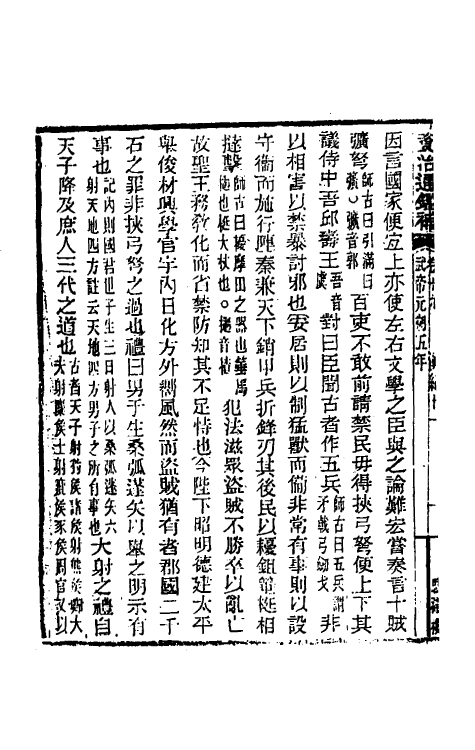 資治通鑑補 武帝元朔五年
因言國家便宜上亦使左右文學之臣與之論難宏嘗奏言十賊
彍弩師古曰引滿曰彍彍音郭百吏不敢前請禁民毋得挾弓弩便上下其
議侍中吾邱壽王吾音虞對曰臣聞古者作五兵師古曰五兵謂矛戟弓劔戈非
以相害以禁暴討邪也安居則以制猛獸而備非常有事則以設
守衞而施行陣秦兼天下銷甲兵折鋒刃其後民以耰鉏箠梃相
撻擊師古曰耰摩田之器也箠馬檛也梃大杖也犯法滋眾盜賊不勝卒以亂亡
故聖王務敎化而省禁防知其不足恃也今陛下昭明德建太平
舉俊材興學官宇內日化方外鄉風然而盜賊猶有者郡國二千
石之罪非挾弓弩之過也禮曰男子生桑弧蓬矢以舉之明示有
事也記內則國君世子生三日射人以桑弧蓬矢六射天地四方註云天地四方男子之所有事也大射之禮自
天子降及庶人三代之道也古者天子射豹侯諸侯射熊侯卿大